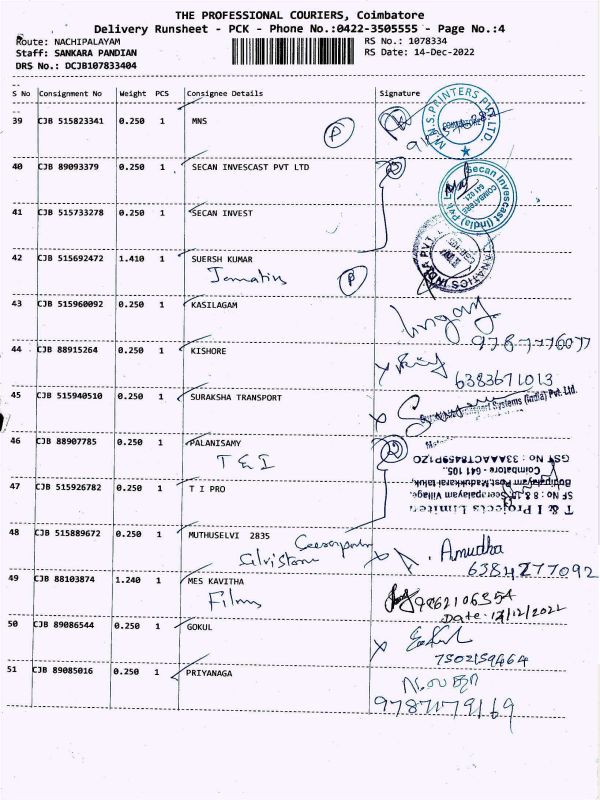 THE PROFESSIONAL COURIERS, Coimbatore
Delivery Runsheet - PCK - Phone No.:0422-3505555 - Page No.:4
Route: NACHIPALAYAM RS No.: 1078334
Staff: SANKARA PANDIAN RS Date: 14-Dec-2022
DRS No.: DCJB107833404
S No Consignment No Weight PCS Consignee Details Signature
39 CJB 515823341 0.250 1 MNS
M.N.S. PRINTERS PVT LTD.
P
40 CJB 89093379 0.250 1 SECAN INVESCAST PVT LTD
Secan Invescast (India) Pvt. Ltd
COIMBATORE 641 021
41 CJB 515733278 0.250 1 SECAN INVEST
42 CJB 515692472 1.410 1 SUERSH KUMAR
P
INDIA PVT.
43 CJB 515960092 0.250 1 KASILAGAM
9787776077
44 CJB 88915264 0.250 1 KISHORE
6383671013
45 CJB 515940510 0.250 1 SURAKSHA TRANSPORT
Systems (India) Pvt. Ltd.
46 CJB 88907785 0.250 1 PALANISAMY
T & I
T & I Projects Limited
SF No: 8 & Seerapalayam Village,
Post, Madukkarai taluk,
Coimbatore - 641 105.
GST No : 33AAACT8459P1ZO
47 CJB 515926782 0.250 1 T I PRO
48 CJB 515889672 0.250 1 MUTHUSELVI 2835
A. Amudha
6384277092
49 CJB 88103874 1.240 1 MES KAVITHA
Films
9862106354
Date
50 CJB 89086544 0.250 1 GOKUL
7502159664
51 CJB 89085016 0.250 1 PRIYANAGA
9787179169